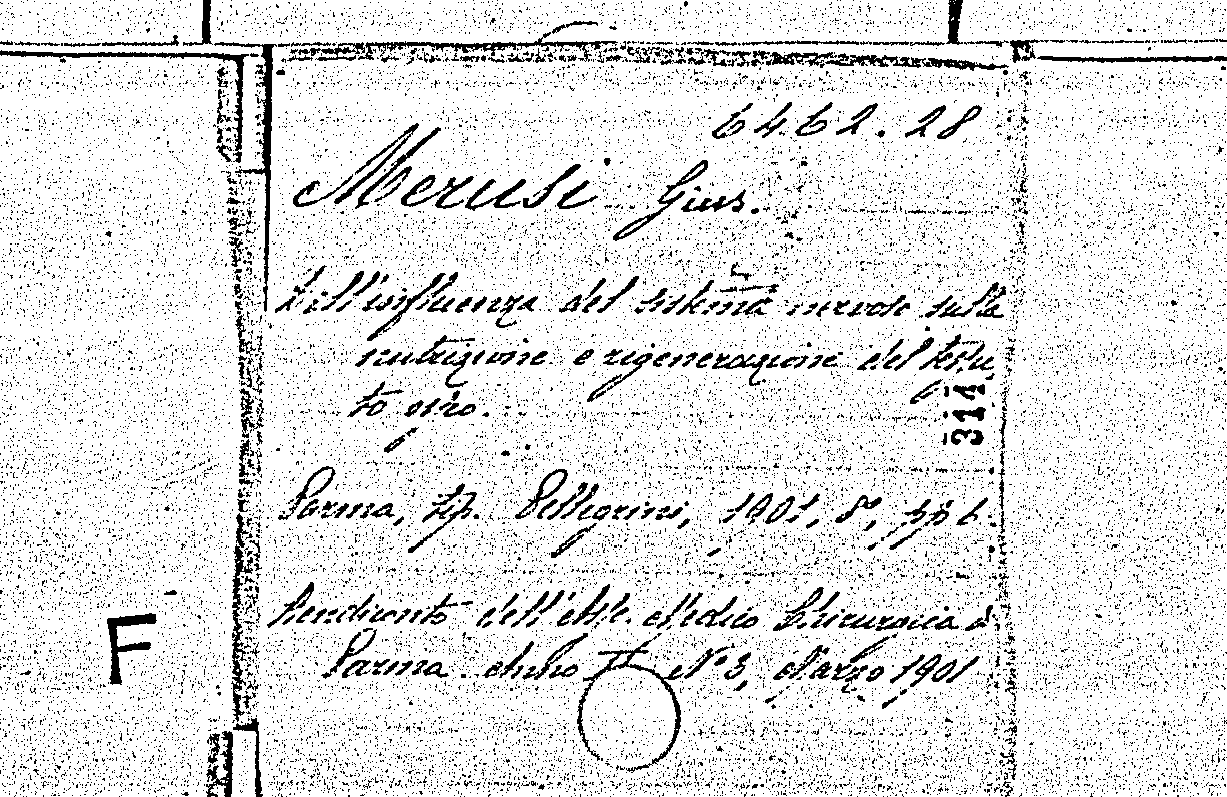 6462.28
Merusi Gius.
Dell'influenza del sistema nervoso sulla
nutrizione e rigenerazione del tessu
to osseo.
311
Parma, tip. Pellegrini, 1901, 8°, pp 6.
Rendiconto dell'Ass. Medico Chirurgica di
Parma Anno II N° 3, Marzo 1901
F